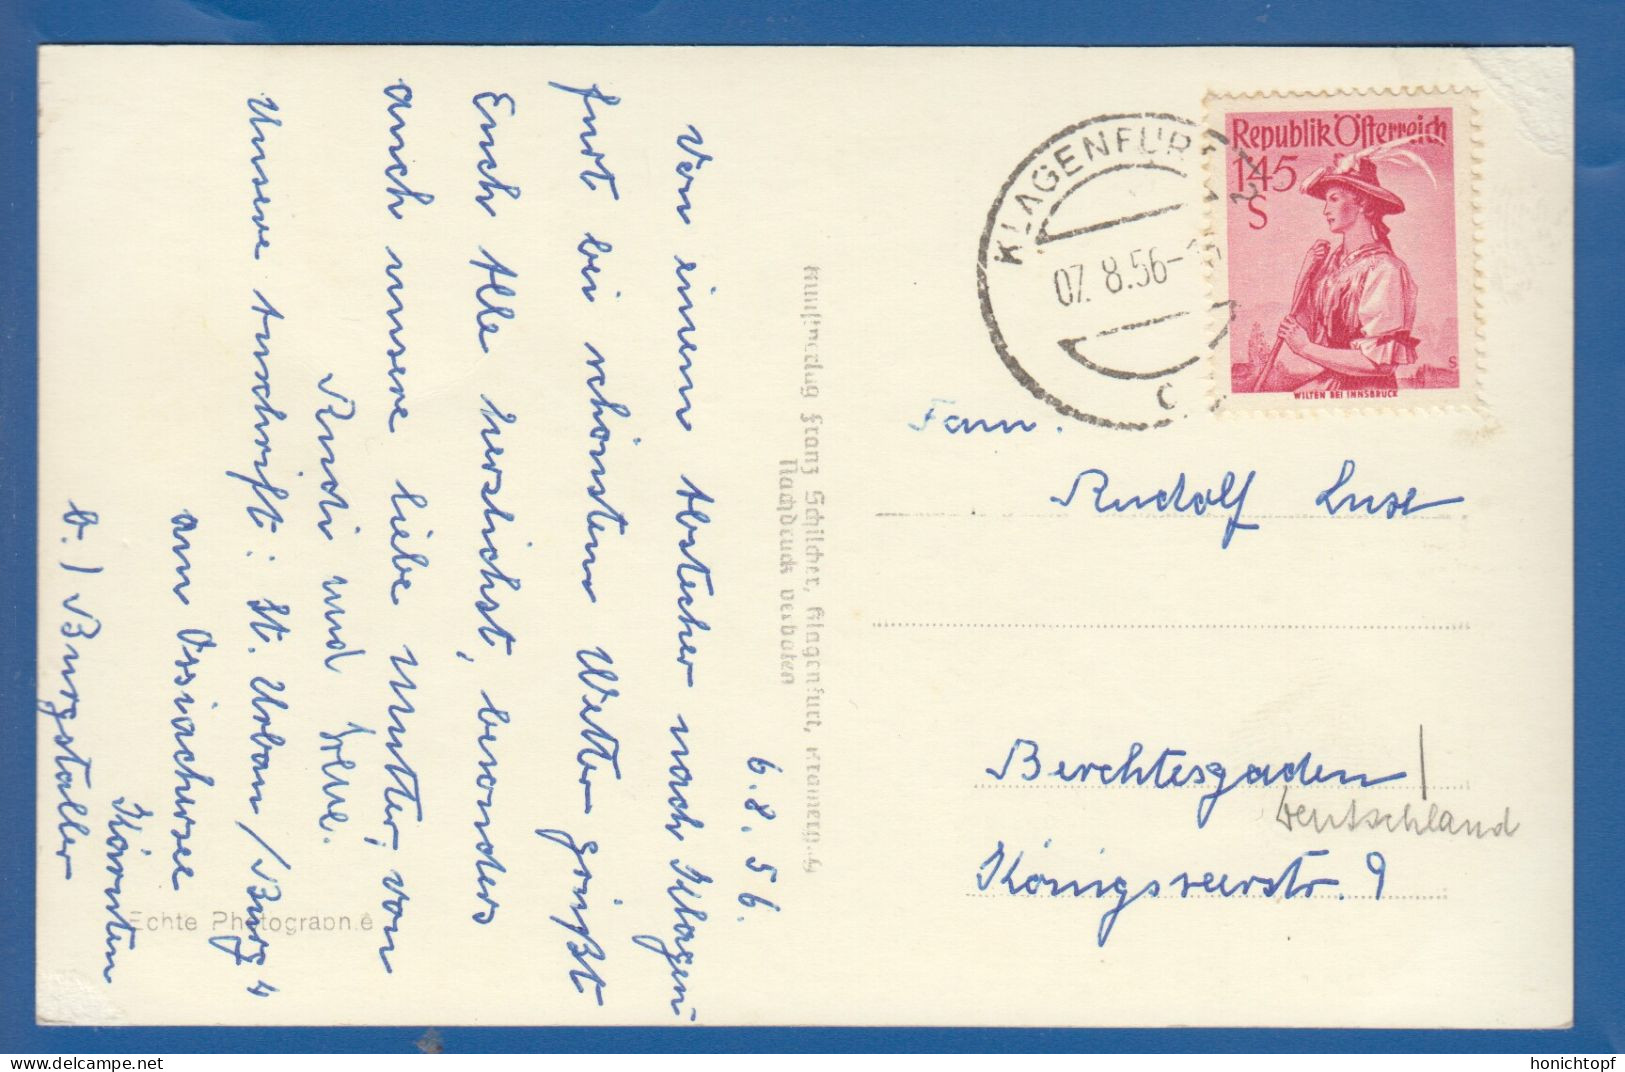 6.8.56.
Von einem Abstecher nach Klagen
furt bei schönstem Wetter grüßt
Euch Alle herzlichst, besonders
auch unsere liebe Mutter, von
Rudi und
Unsere Anschrift: St. Urban / Burg 4
am Ossiachersee
Kärnten
b. / Burgstaller
Echte Photographie
Kunstverlag Franz Schilcher, Klagenfurt, Kramerg. 4
Nachdruck verboten
KLAGENFURT 2
07.8.56-1
C
Republik Österreich
145
S
S
WILTEN BEI INNSBRUCK
Fam.
Rudolf
Berchtesgaden /
Deutschland
Königsseerstr. 9
delcampe.net
honichtopf